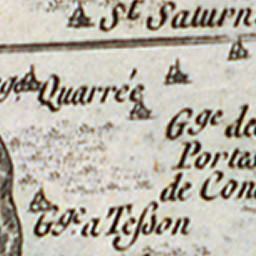 St Saturn
ge. Quarrée
Gge de
Portes
de Con
Gge. a Teſson